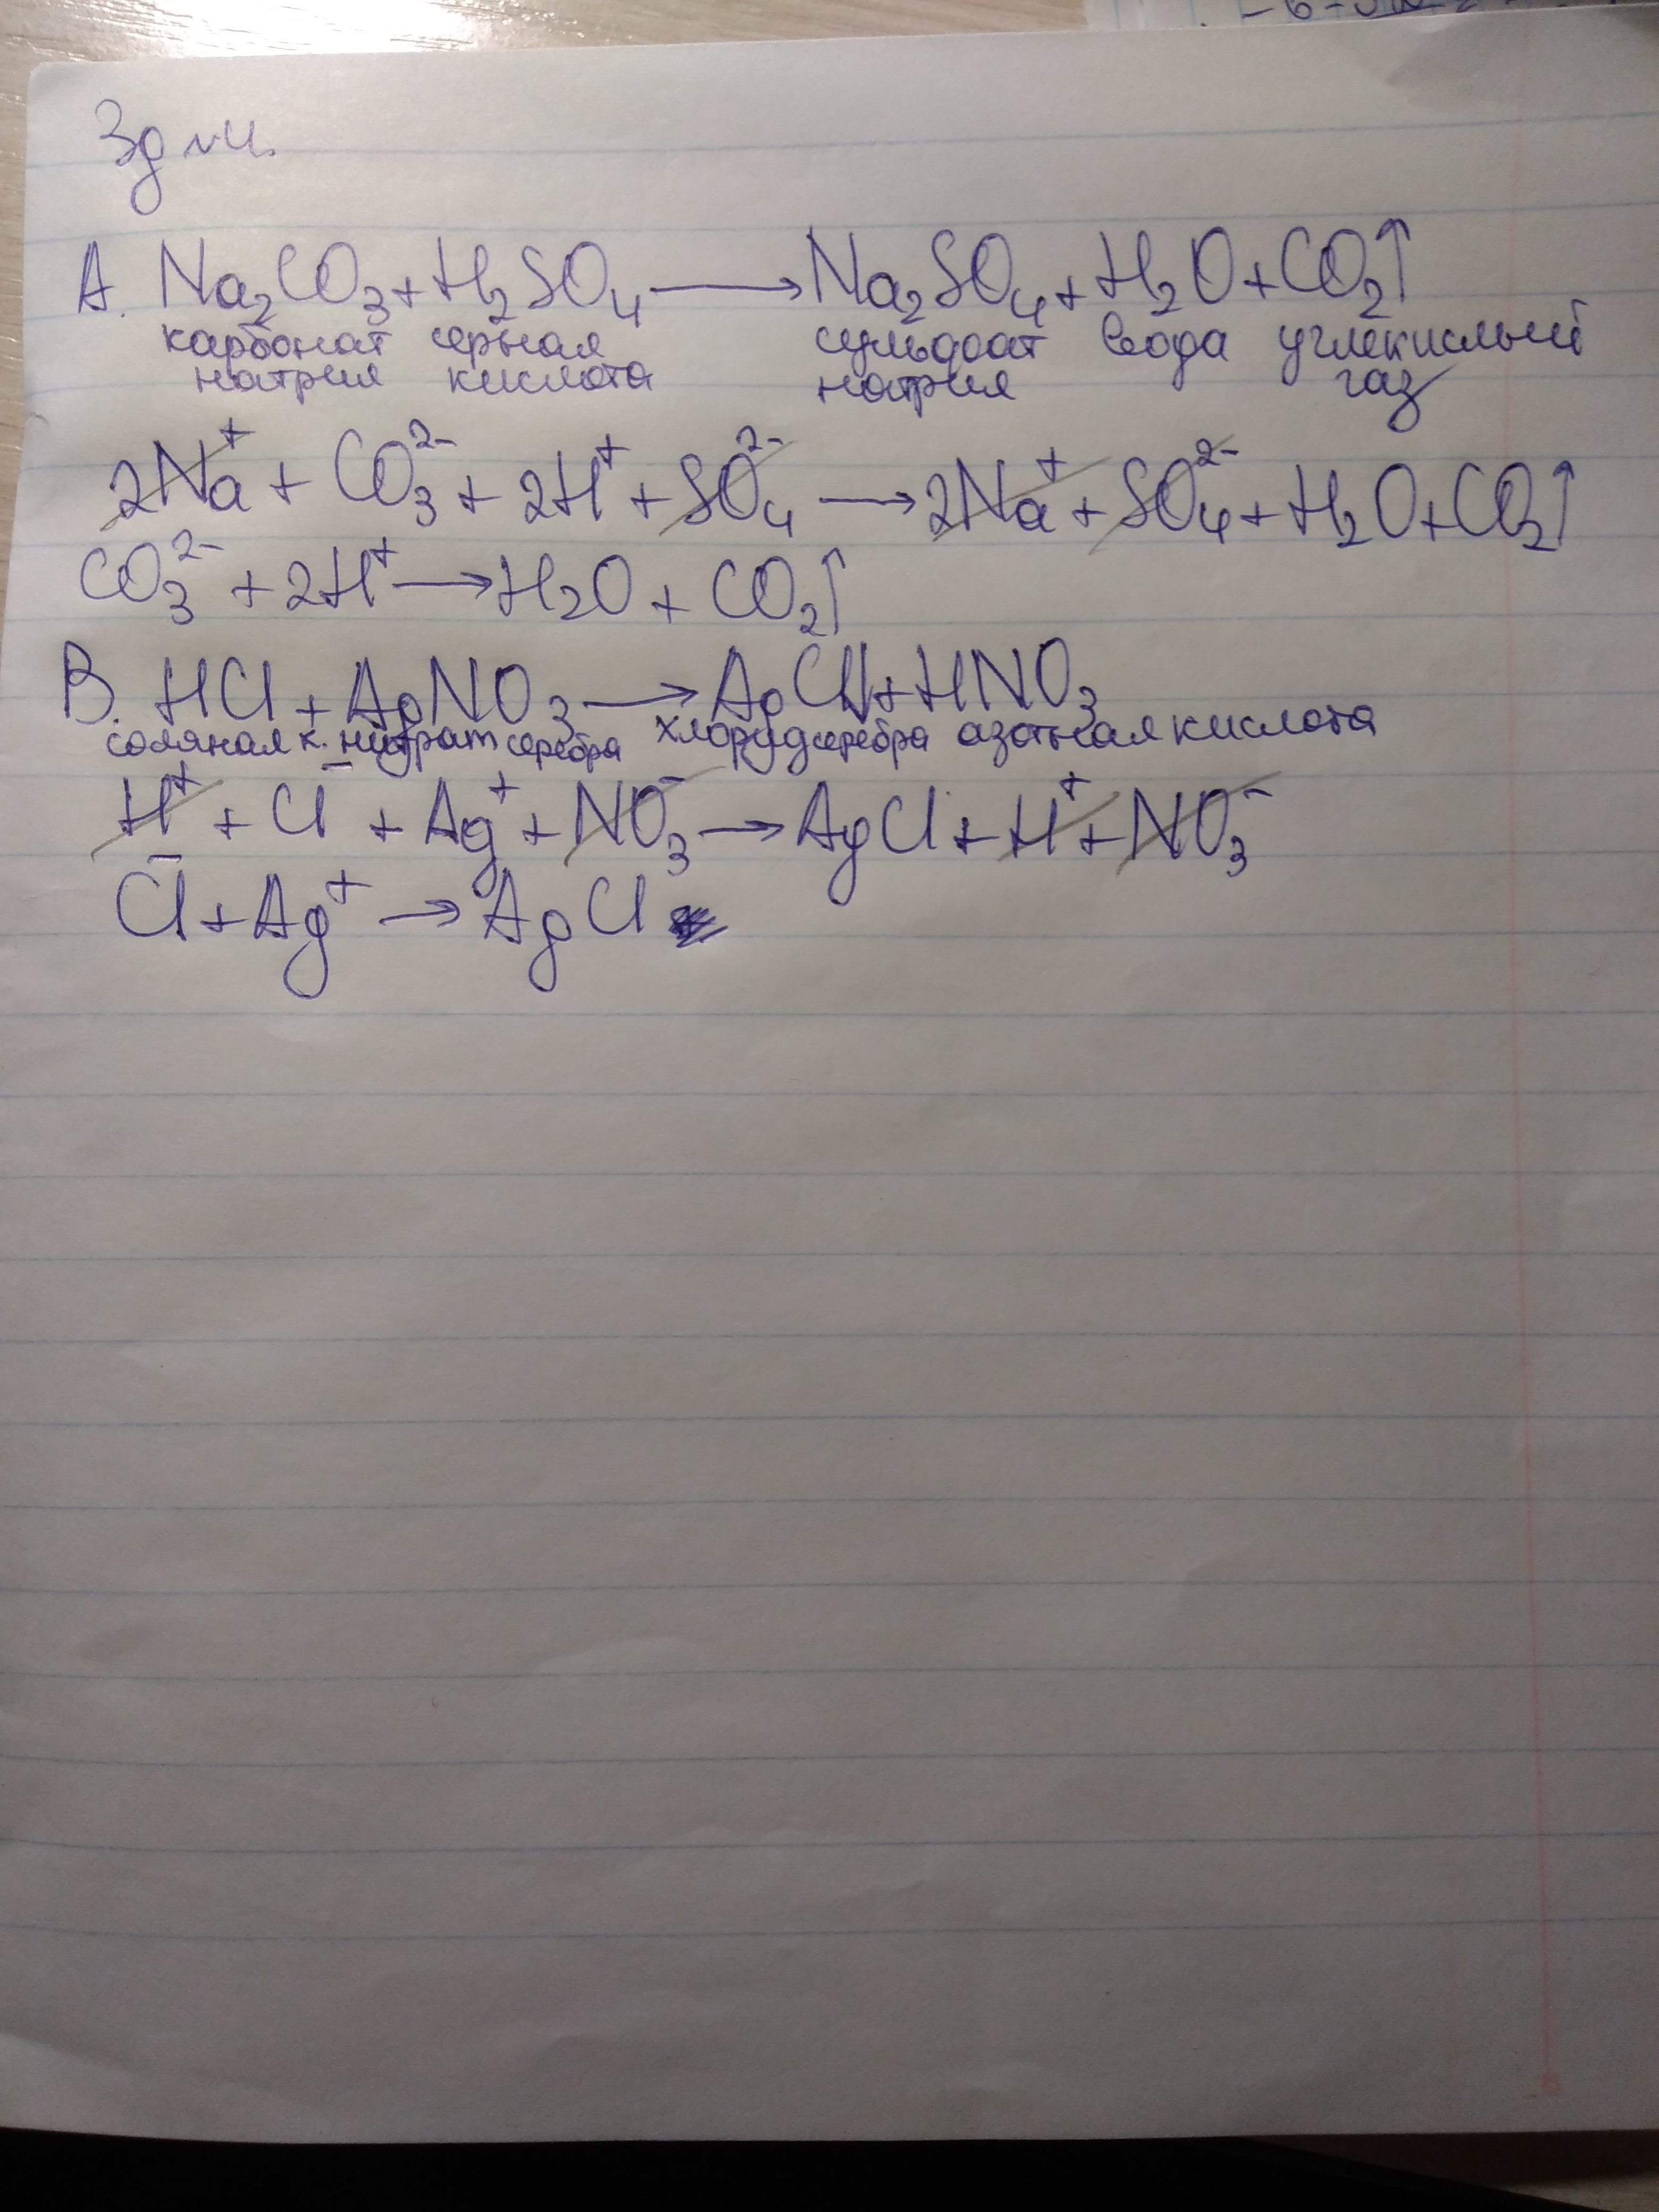 Зд №4.
A. Na₂CO₃ + H₂SO₄ ⟶ Na₂SO₄ + H₂O + CO₂↑
карбонат серная сульфат вода углекислый
натрия кислота натрия газ
2Na⁺ + CO₃²⁻ + 2H⁺ + SO₄²⁻ ⟶ 2Na⁺ + SO₄²⁻ + H₂O + CO₂↑
CO₃²⁻ + 2H⁺ ⟶ H₂O + CO₂↑
B. HCl + AgNO₃ ⟶ AgCl + HNO₃
соляная к. нитрат серебра хлорид серебра азотная кислота
H⁺ + Cl⁻ + Ag⁺ + NO₃⁻ ⟶ AgCl + H⁺ + NO₃⁻
Cl⁻ + Ag⁺ ⟶ AgCl